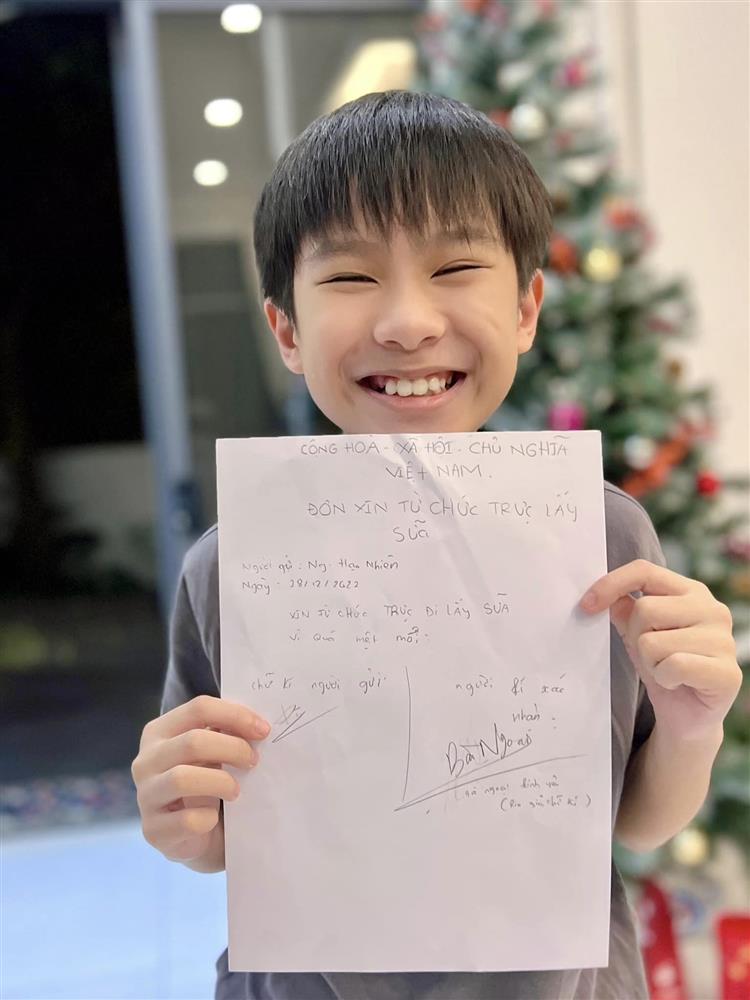 CÔNG HOÀ - XÃ HỘI - CHỦ NGHĨA
VIỆT NAM.
ĐÔN XIN TỪ CHỨC TRỰC LẤY
SỮA
Người gửi : Ng. Hạo Nhiên
Ngày : 28/12/2022
XIN TỪ CHỨC TRỰC ĐI LẤY SỮA
vì quá mệt mỏi.
chữ kí người gửi
người kí xác
nhận :
Bà Ngoại
bà ngoại